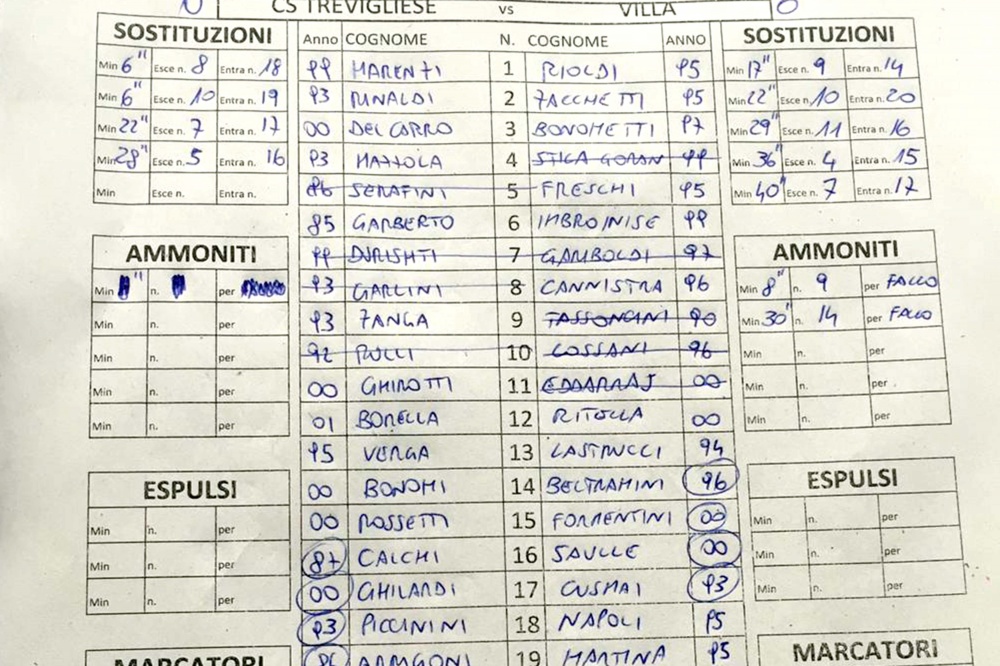 0 CS TREVIGLIESE vs VILLA 0
SOSTITUZIONI Anno COGNOME N. COGNOME ANNO SOSTITUZIONI
Min 6" Esce n. 8 Entra n. 18 99 MARENTI 1 RIOLDI 95 Min 17" Esce n. 9 Entra n. 14
Min 6" Esce n. 10 Entra n. 19 93 RINALDI 2 ZACCHETTI 95 Min 22" Esce n. 10 Entra n. 20
Min 22" Esce n. 7 Entra n. 17 00 DEL CARRO 3 BONOMETTI 97 Min 29" Esce n. 11 Entra n. 16
Min 28" Esce n. 5 Entra n. 16 93 MAZZOLA 4 STICA GORAN 99 Min 36" Esce n. 4 Entra n. 15
Min Esce n. Entra n. 86 SERAFINI 5 FRESCHI 95 Min 40" Esce n. 7 Entra n. 17
85 GARBERTO 6 IMBROINISE 99
AMMONITI 99 DURISHTI 7 GAMBOLDI 97 AMMONITI
Min n. per 93 GARLINI 8 CANNISTRA 96 Min 8" n. 9 per FALLO
Min n. per 93 ZANGA 9 TASSONCINI 90 Min 30" n. 14 per FALLO
Min n. per 92 PULLI 10 COSSANI 96 Min n. per
Min n. per 00 GHIROTTI 11 EDDARRAJ 00 Min n. per
Min n. per 01 BORELLA 12 RITOLLA 00 Min n. per
95 VERGA 13 LASTRUCCI 94
ESPULSI 00 BONOMI 14 BELTRAMINI 96 ESPULSI
Min n. per 00 ROSSETTI 15 FORMENTINI 00 Min n. per
Min n. per 87 CALCHI 16 SAULLE 00 Min n. per
Min n. per 00 GHILARDI 17 CUSMAI 93 Min n. per
93 PICCININI 18 NAPOLI 95
MARCATORI ARMGONI 19 MARTINA 95 MARCATORI